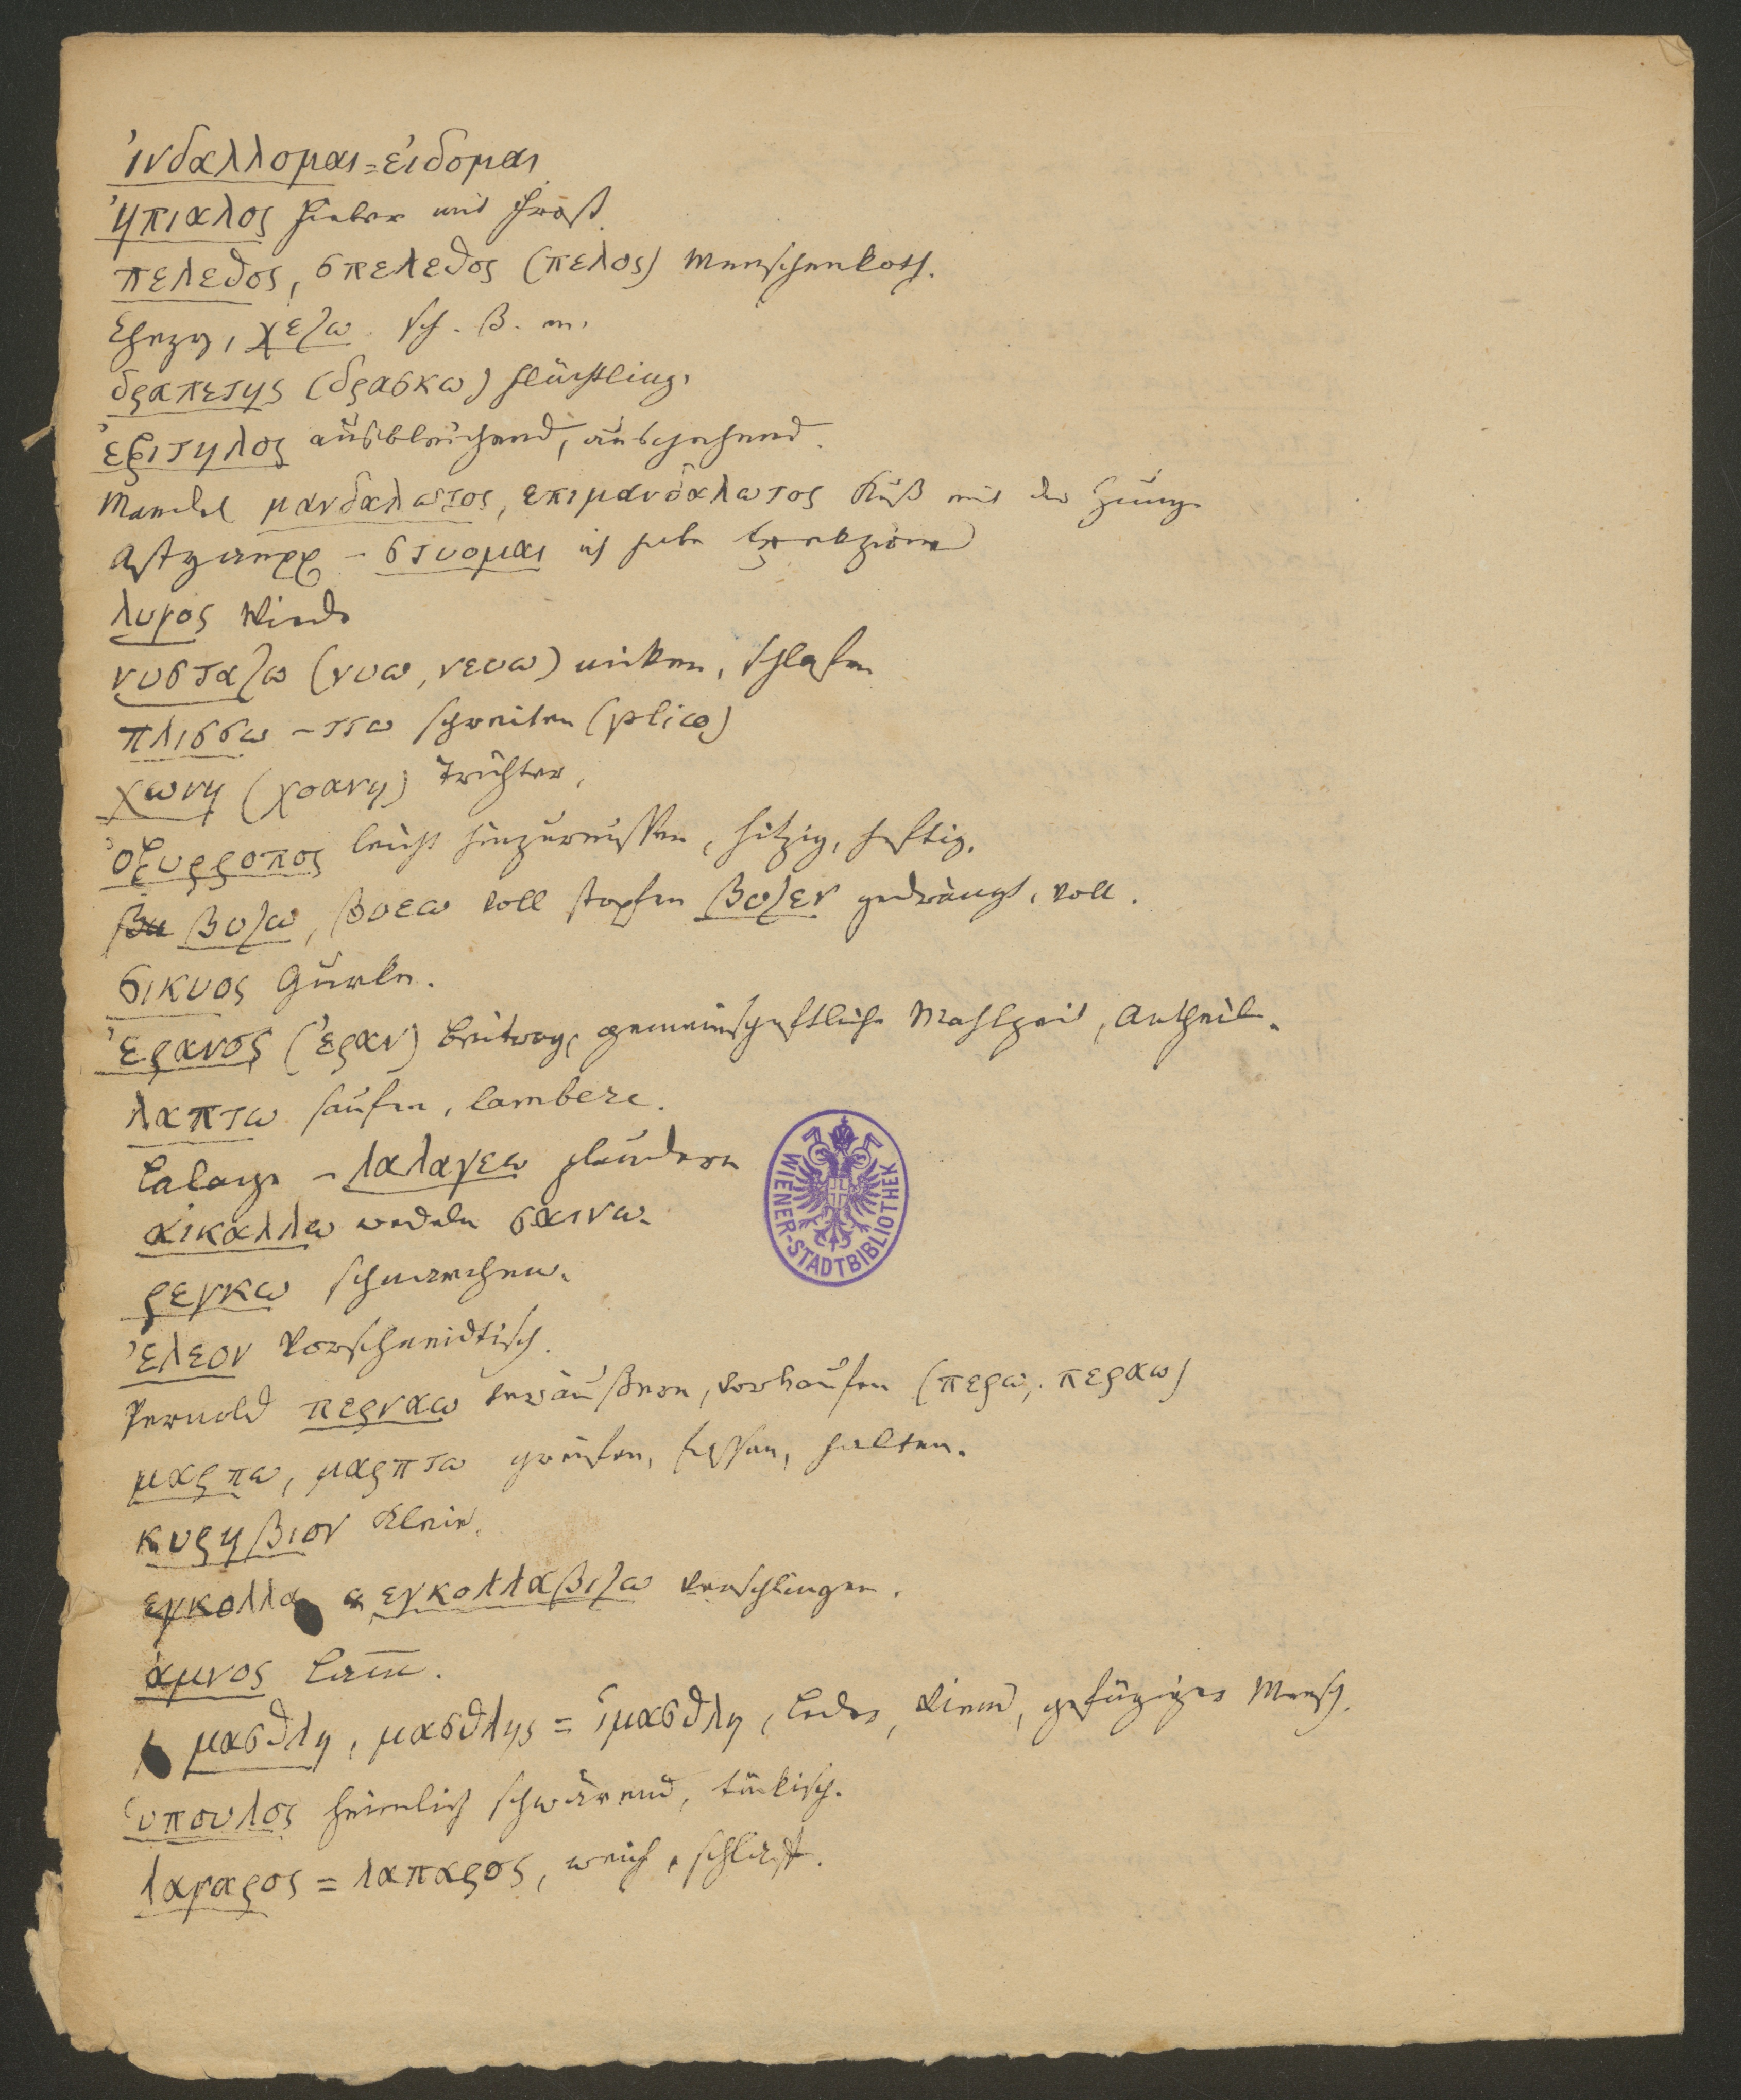 ἰνδαλλομαι = εἰδομαι
ἠπιαλος Fieber mit Frost.
πελεθος, σπελεθος (πελος) Menschenkoth.
χεζω. sch. ß. en.
δραπετης (δρασκω) Flüchtling.
ἐξιτηλος ausbleichend, ausgehend.
Mandel μανδαλωτος, επιμανδαλωτος Kuß mit der Zunge
στυομαι ich habe
λυγος Weide
νυσταζω (νυω, νευω) nicken, schlafen
πλισσω - ττω schreiten (plico)
χωνη (χοανη) Trichter,
ὀξυρροπος leicht hinzureissen, hitzig, heftig.
βυ βυζω, βυεω voll stopfen βυζεν gedrängt, voll.
σικυος Gurke.
ἐρανος (ἐραν) Beitrag, gemeinschaftliche Mahlzeit, Antheil.
λαπτω saufen, lambere.
Lalage - λαλαγεω plaudern
αἰκαλλω wedeln σαινω.
ρεγκω schnarchen.
ἐλεον Vorschneidtisch.
Pernold περναω veräußern, verkaufen (περω, περαω)
μαρπω, μαρπτω greifen, fassen, halten.
κυρηβιον Kleie.
εγκολλα εγκολλαβιζω verschlingen.
ἀμνος Lam̅.
μασθλη, μασθλης = ἱμασθλη, Leder, Riem, gefügiger Mensch.
ὑπουλος heimlich schwärend, tückisch.
λαγαρος = λαπαρος, weich, schlaff.
WIENER-STADTBIBLIOTHEK